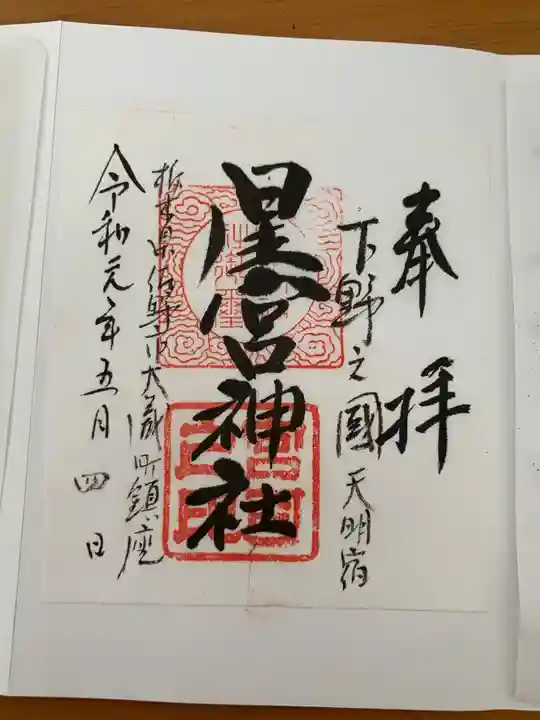 奉拝
下野之國天明宿
星宮神社
栃木県佐野市大蔵町鎮座
令和元年五月四日